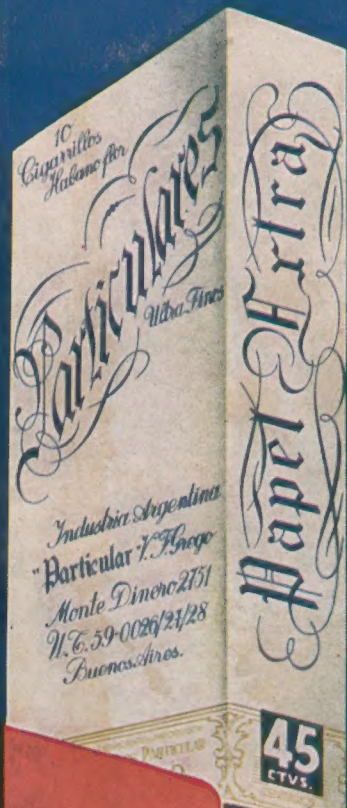 10
Cigarrillos
Habano flor
Particulares
Ultra Finos
Industria Argentina
"Particular" V. F. Grego
Monte Dinero 2751
U.T. 59-0026/27/28
Buenos Aires.
Papel Extra
PARTICULAR
45
CTVS.